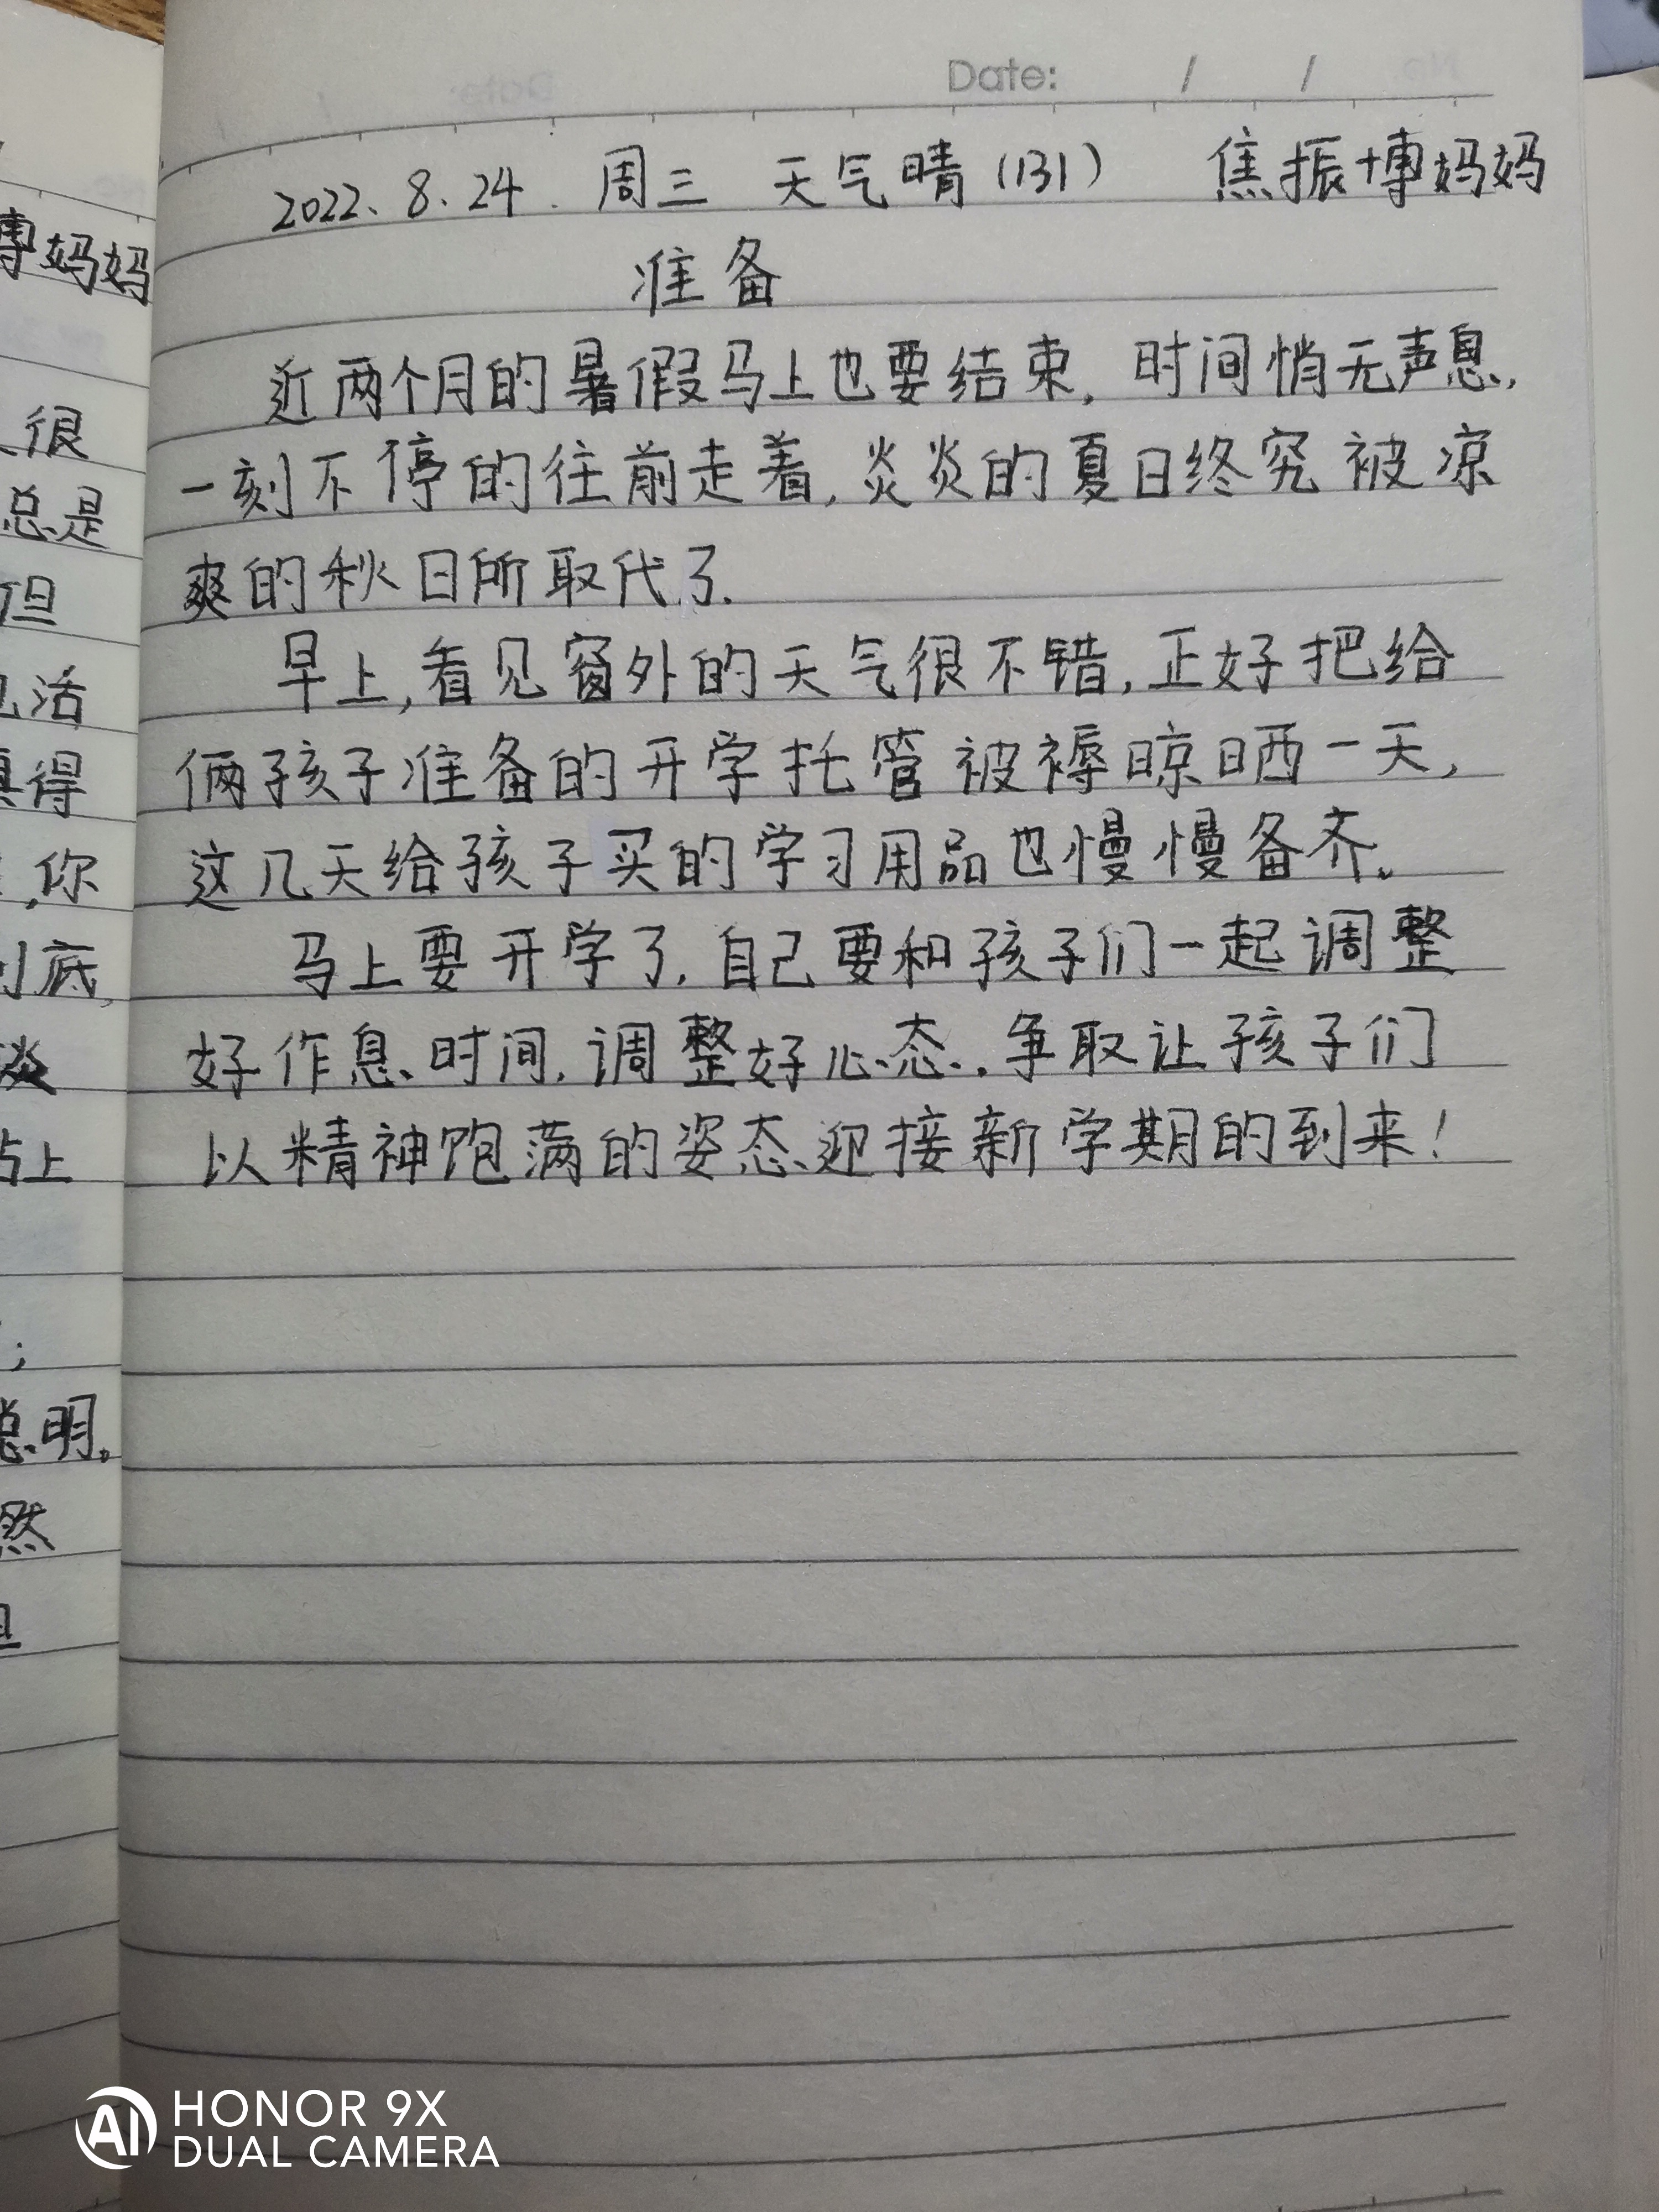 Date: / /
2022、8、24. 周三 天气晴(131) 焦振博妈妈
准备
近两个月的暑假马上也要结束,时间悄无声息,
一刻不停的往前走着,炎炎的夏日终究被凉
爽的秋日所取代了.
早上,看见窗外的天气很不错,正好把给
俩孩子准备的开学托管被褥晾晒一天,
这几天给孩子买的学习用品也慢慢备齐。
马上要开学了,自己要和孩子们一起调整
好作息时间,调整好心态.争取让孩子们
以精神饱满的姿态迎接新学期的到来!
博妈妈
很
总是
但
活
得
,你
到底,
谈
上
;
总明。
然
AI HONOR 9X
DUAL CAMERA